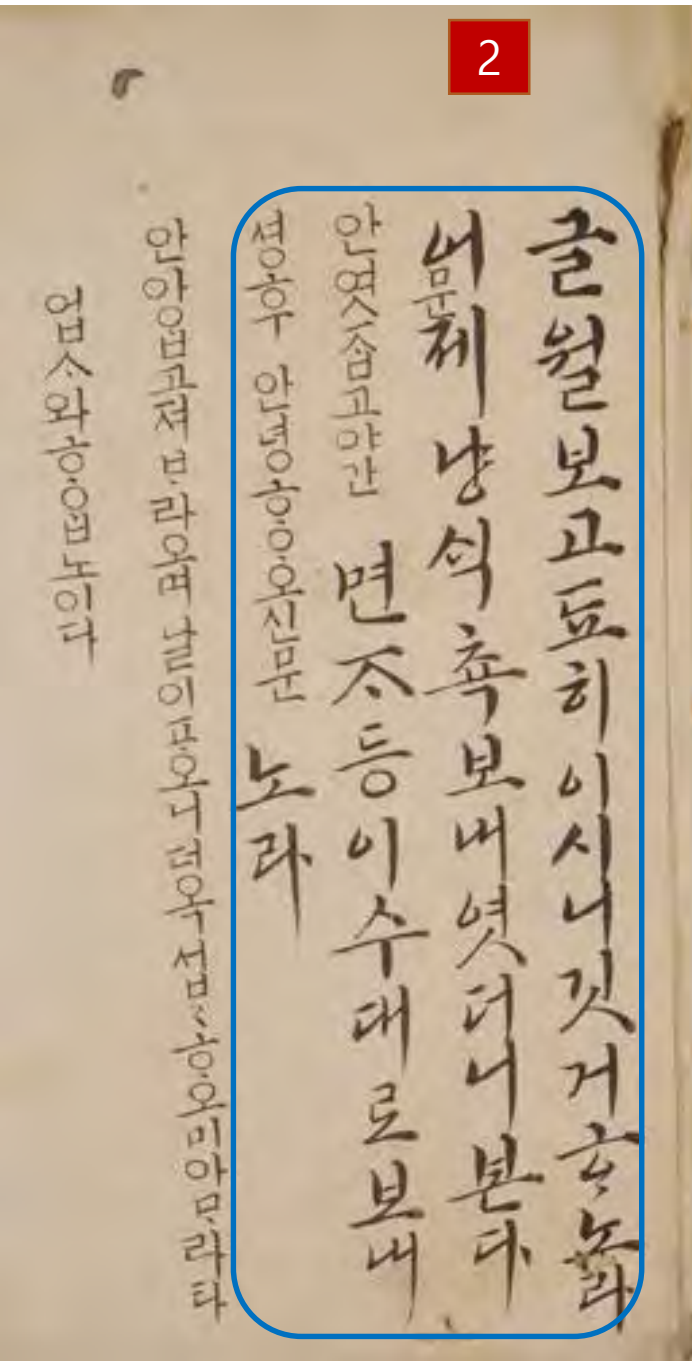 2
글월보고됴히이시니깃거ᄒᆞ노라
어제냥식쵹보내엿더니본다
문
안엿ᄌᆞᆸ고야간 면ᄌᆞ등이수대로보내
셩후 안녕ᄒᆞᄋᆞ오신문 노라
안아ᄋᆞᆸ고져ᄇᆞ라오며날이ᄑᆞ오니더옥섭〻ᄒᆞ오미아ᄆᆞ라타
업ᄉᆞ와ᄒᆞᄋᆞᆸ노이다